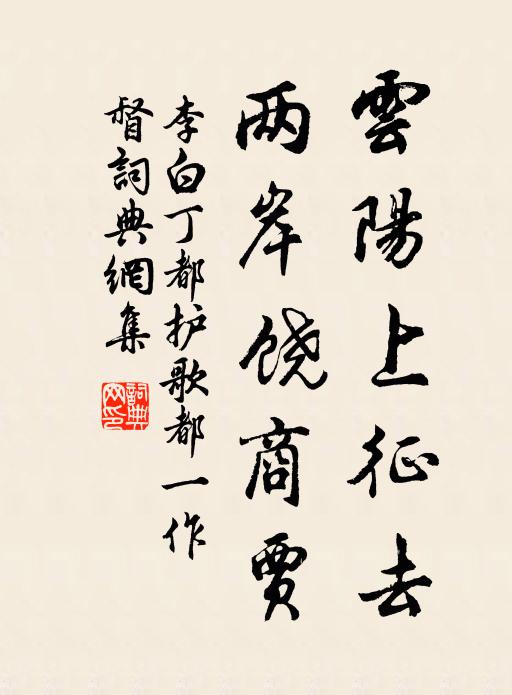 雲陽上征去
两岸饶商賈
李白丁都护歌都一作
督詞典網集
詞典
网印